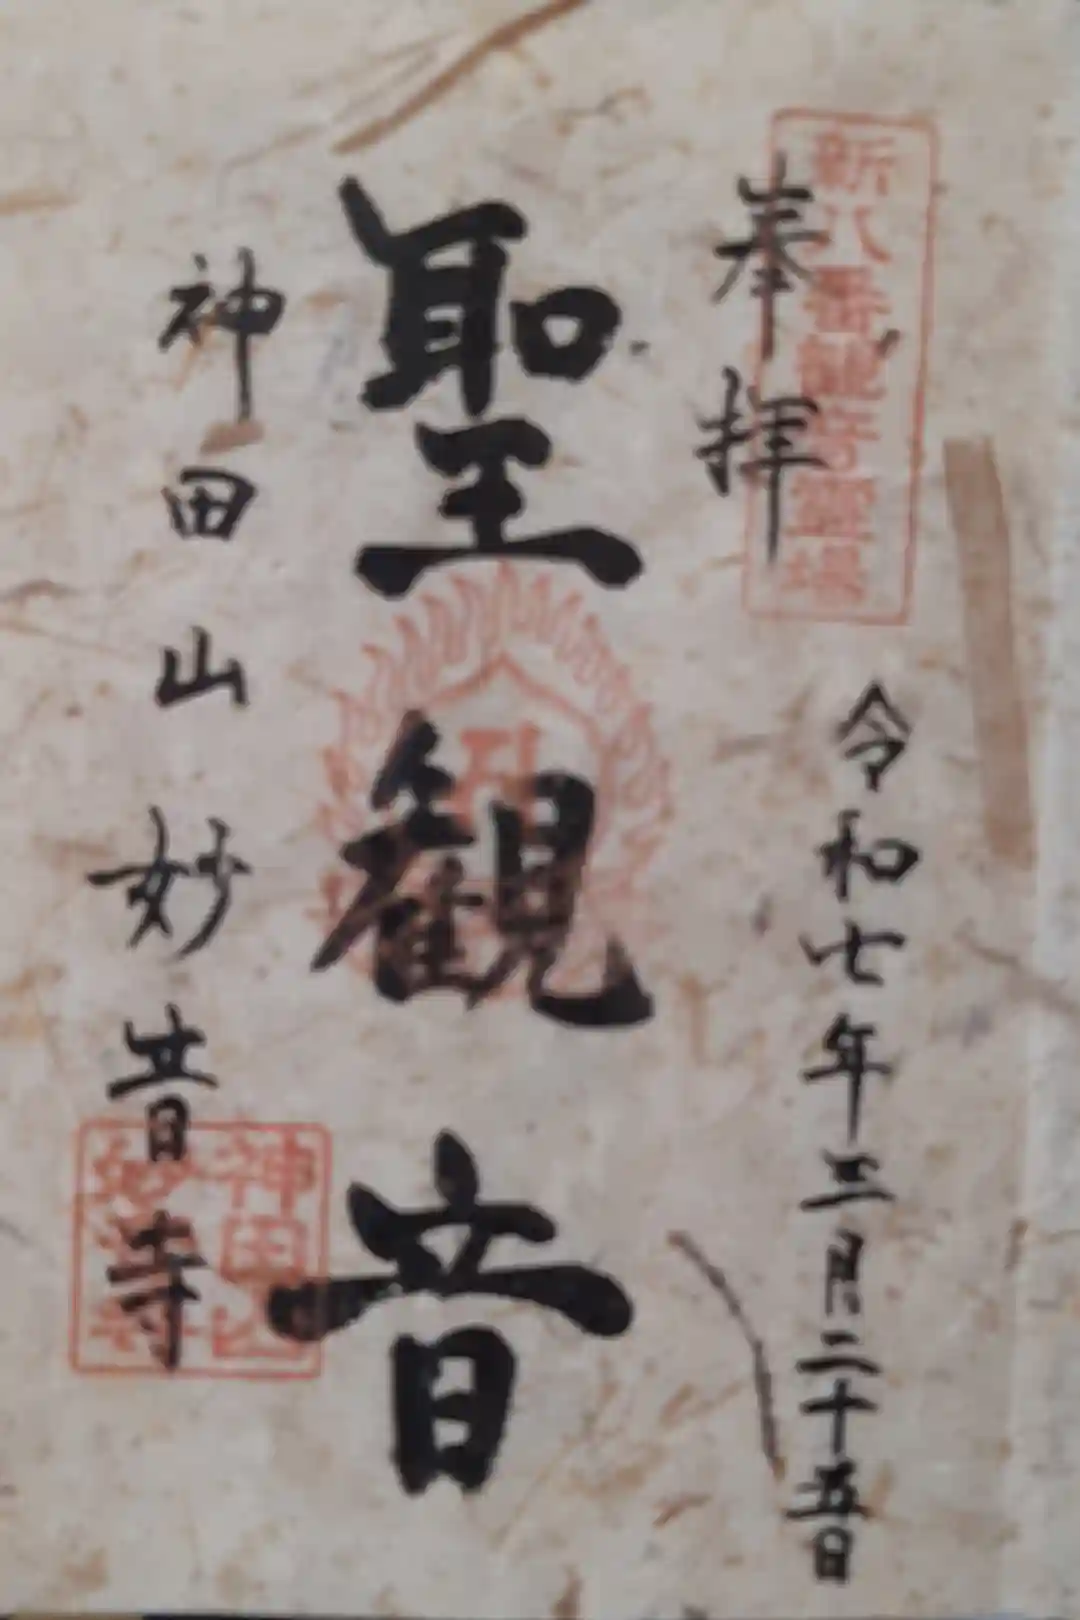 新八番 霊場
奉拝
令和七年三月二十五日
聖観音
神田山妙音寺
神田山
妙音寺